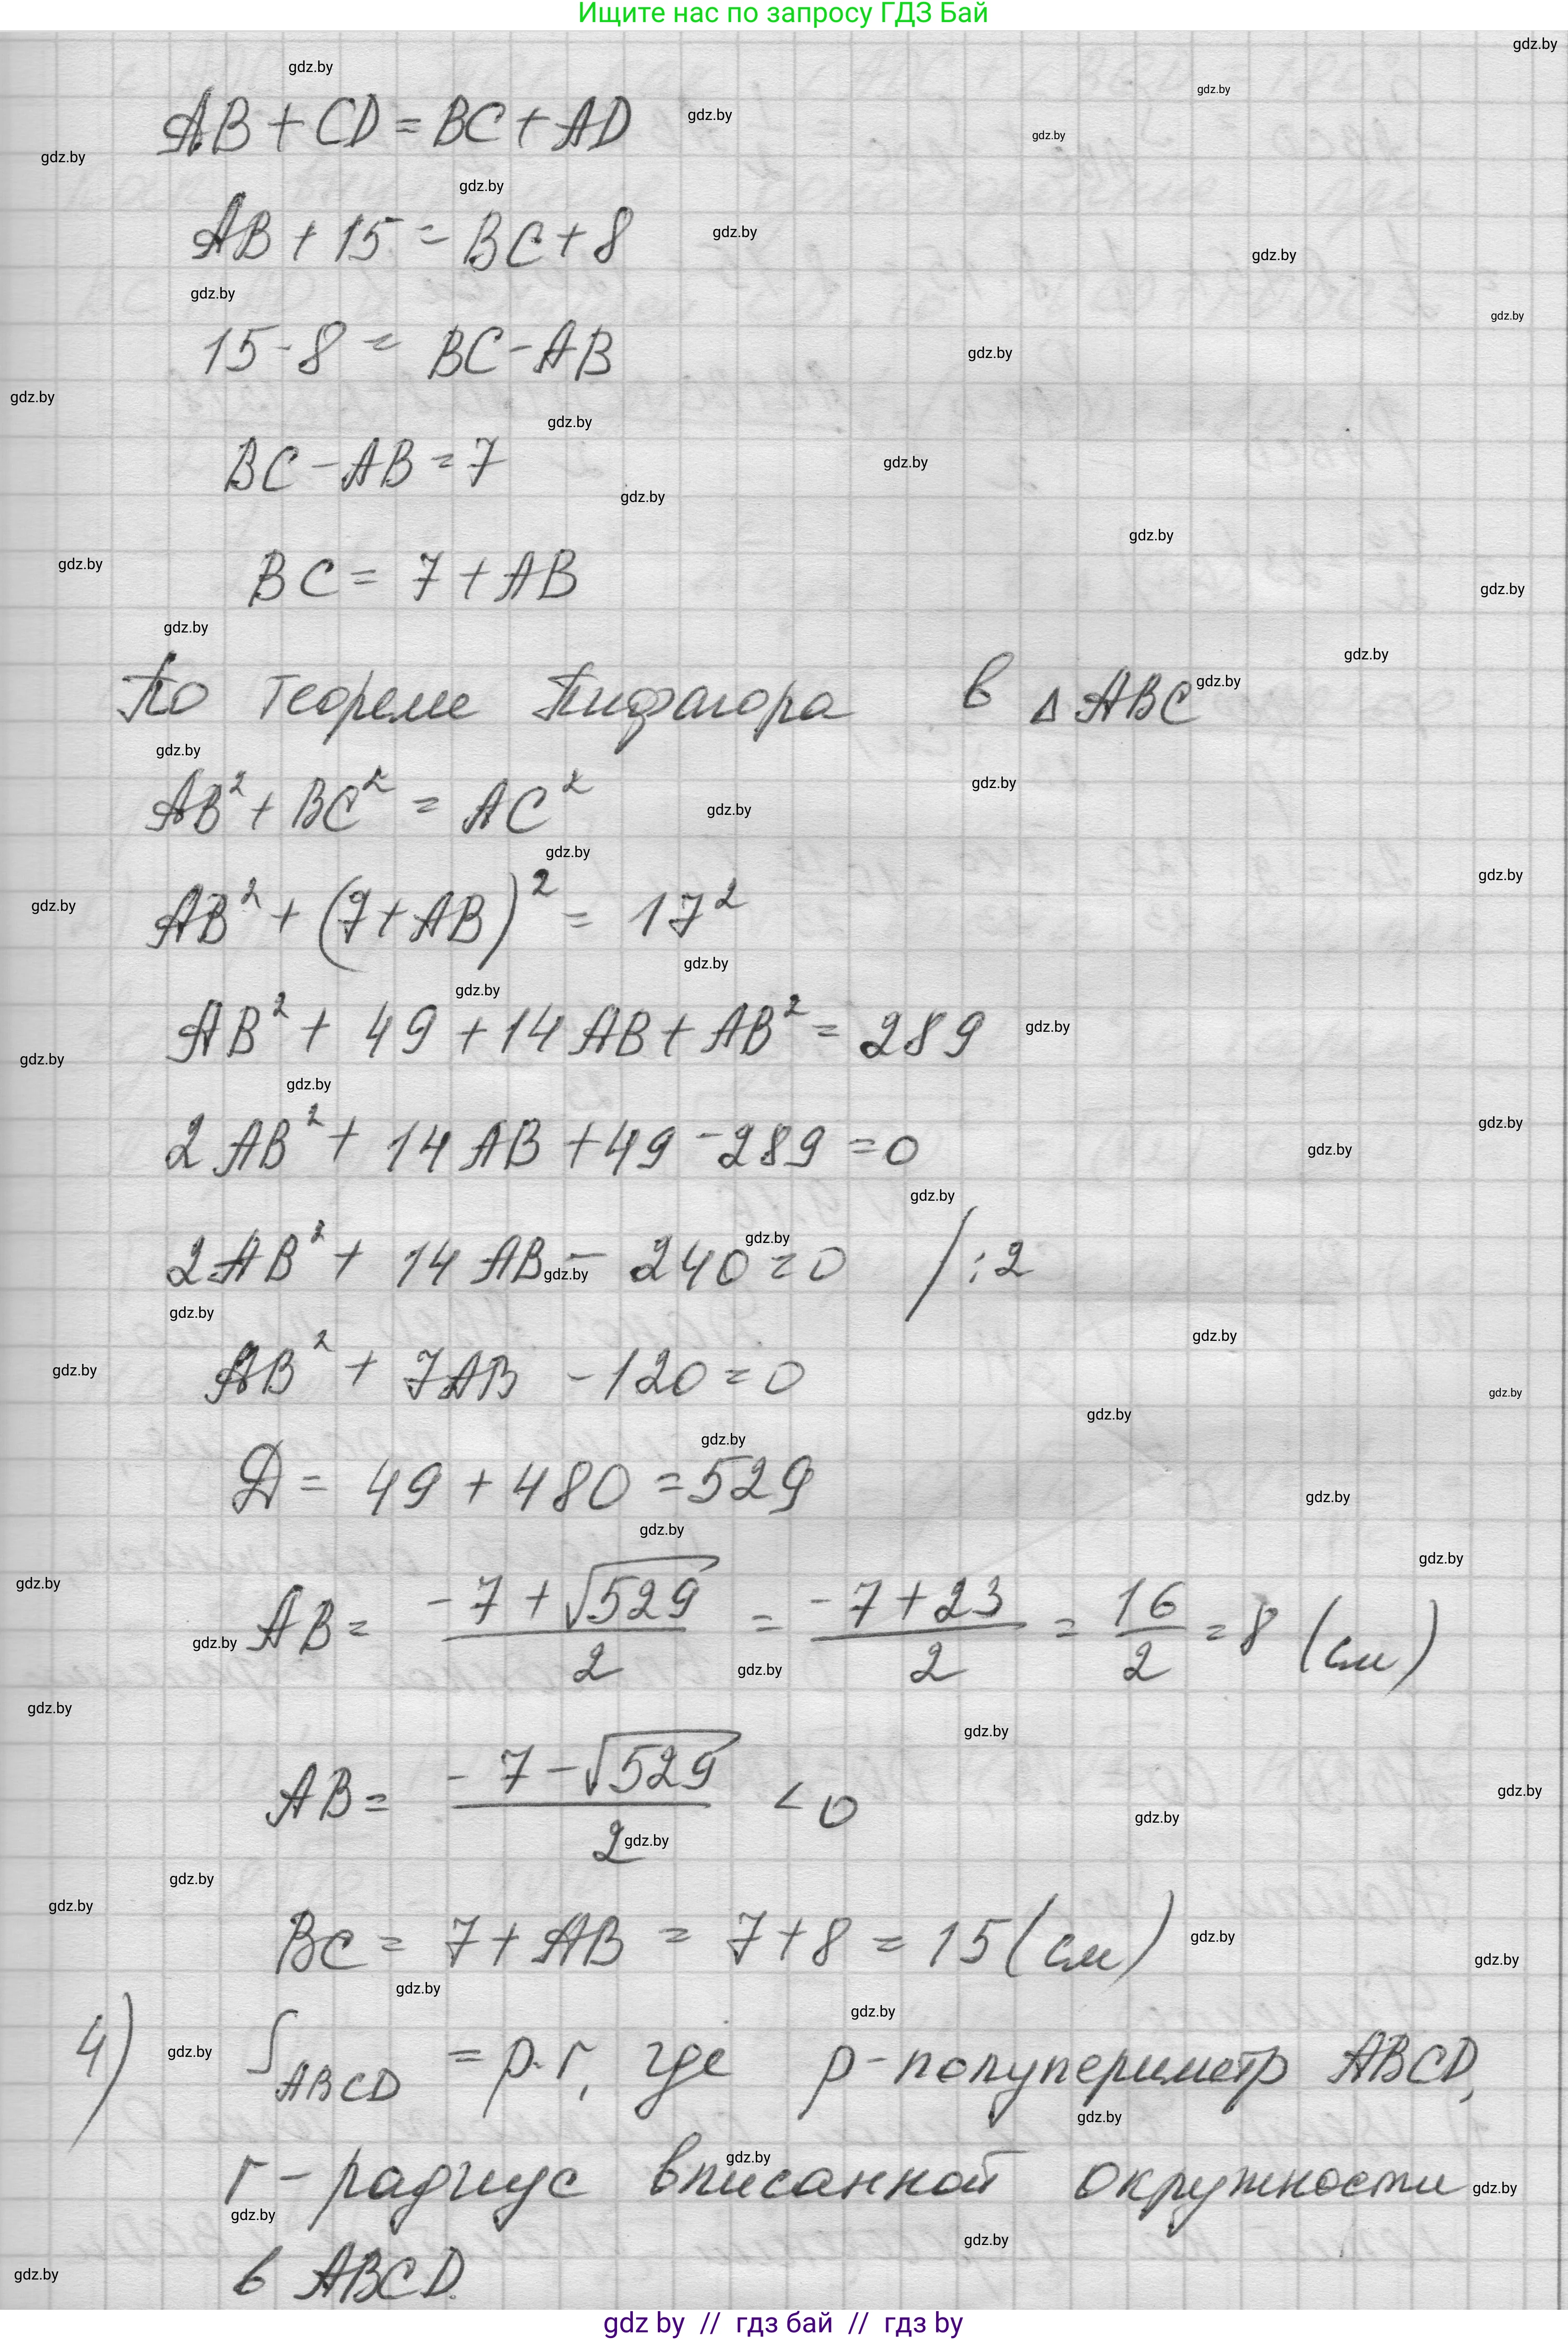 Ищите нас по запросу ГДЗ Бай
AB + CD = BC + AD
AB + 15 = BC + 8
15 - 8 = BC - AB
BC - AB = 7
BC = 7 + AB
По теореме Пифагора в △ABC
AB² + BC² = AC²
AB² + (7 + AB)² = 17²
AB² + 49 + 14AB + AB² = 289
2AB² + 14AB + 49 - 289 = 0
2AB² + 14AB - 240 = 0 /:2
AB² + 7AB - 120 = 0
Д = 49 + 480 = 529
AB = (-7 + √529)/2 = (-7 + 23)/2 = 16/2 = 8 (см)
AB = (-7 - √529)/2 < 0
BC = 7 + AB = 7 + 8 = 15 (см)
4) S_ABCD = p·r, где p - полупериметр ABCD,
r - радиус вписанной окружности
в ABCD.
gdz by // гдз бай // гдз by